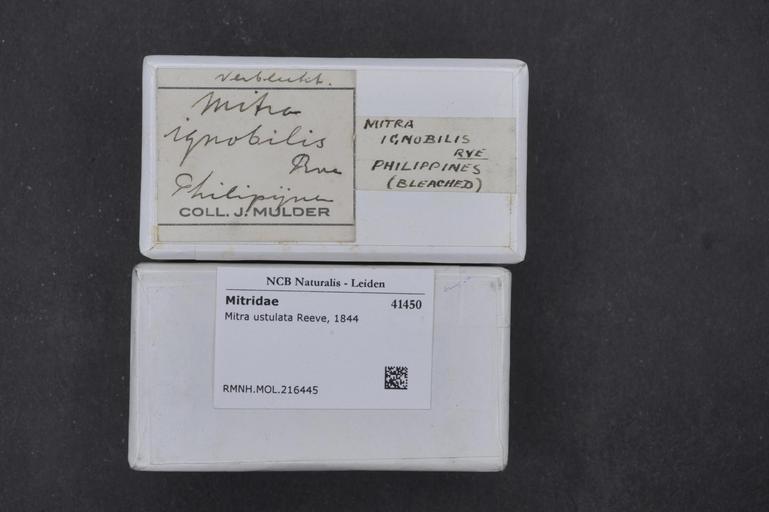 Verbleekt.
Mitra
ignobilis
Rve
Philipijnen
COLL. J. MULDER
MITRA
IGNOBILIS
RVE
PHILIPPINES
(BLEACHED)
NCB Naturalis - Leiden
Mitridae 41450
Mitra ustulata Reeve, 1844
RMNH.MOL.216445